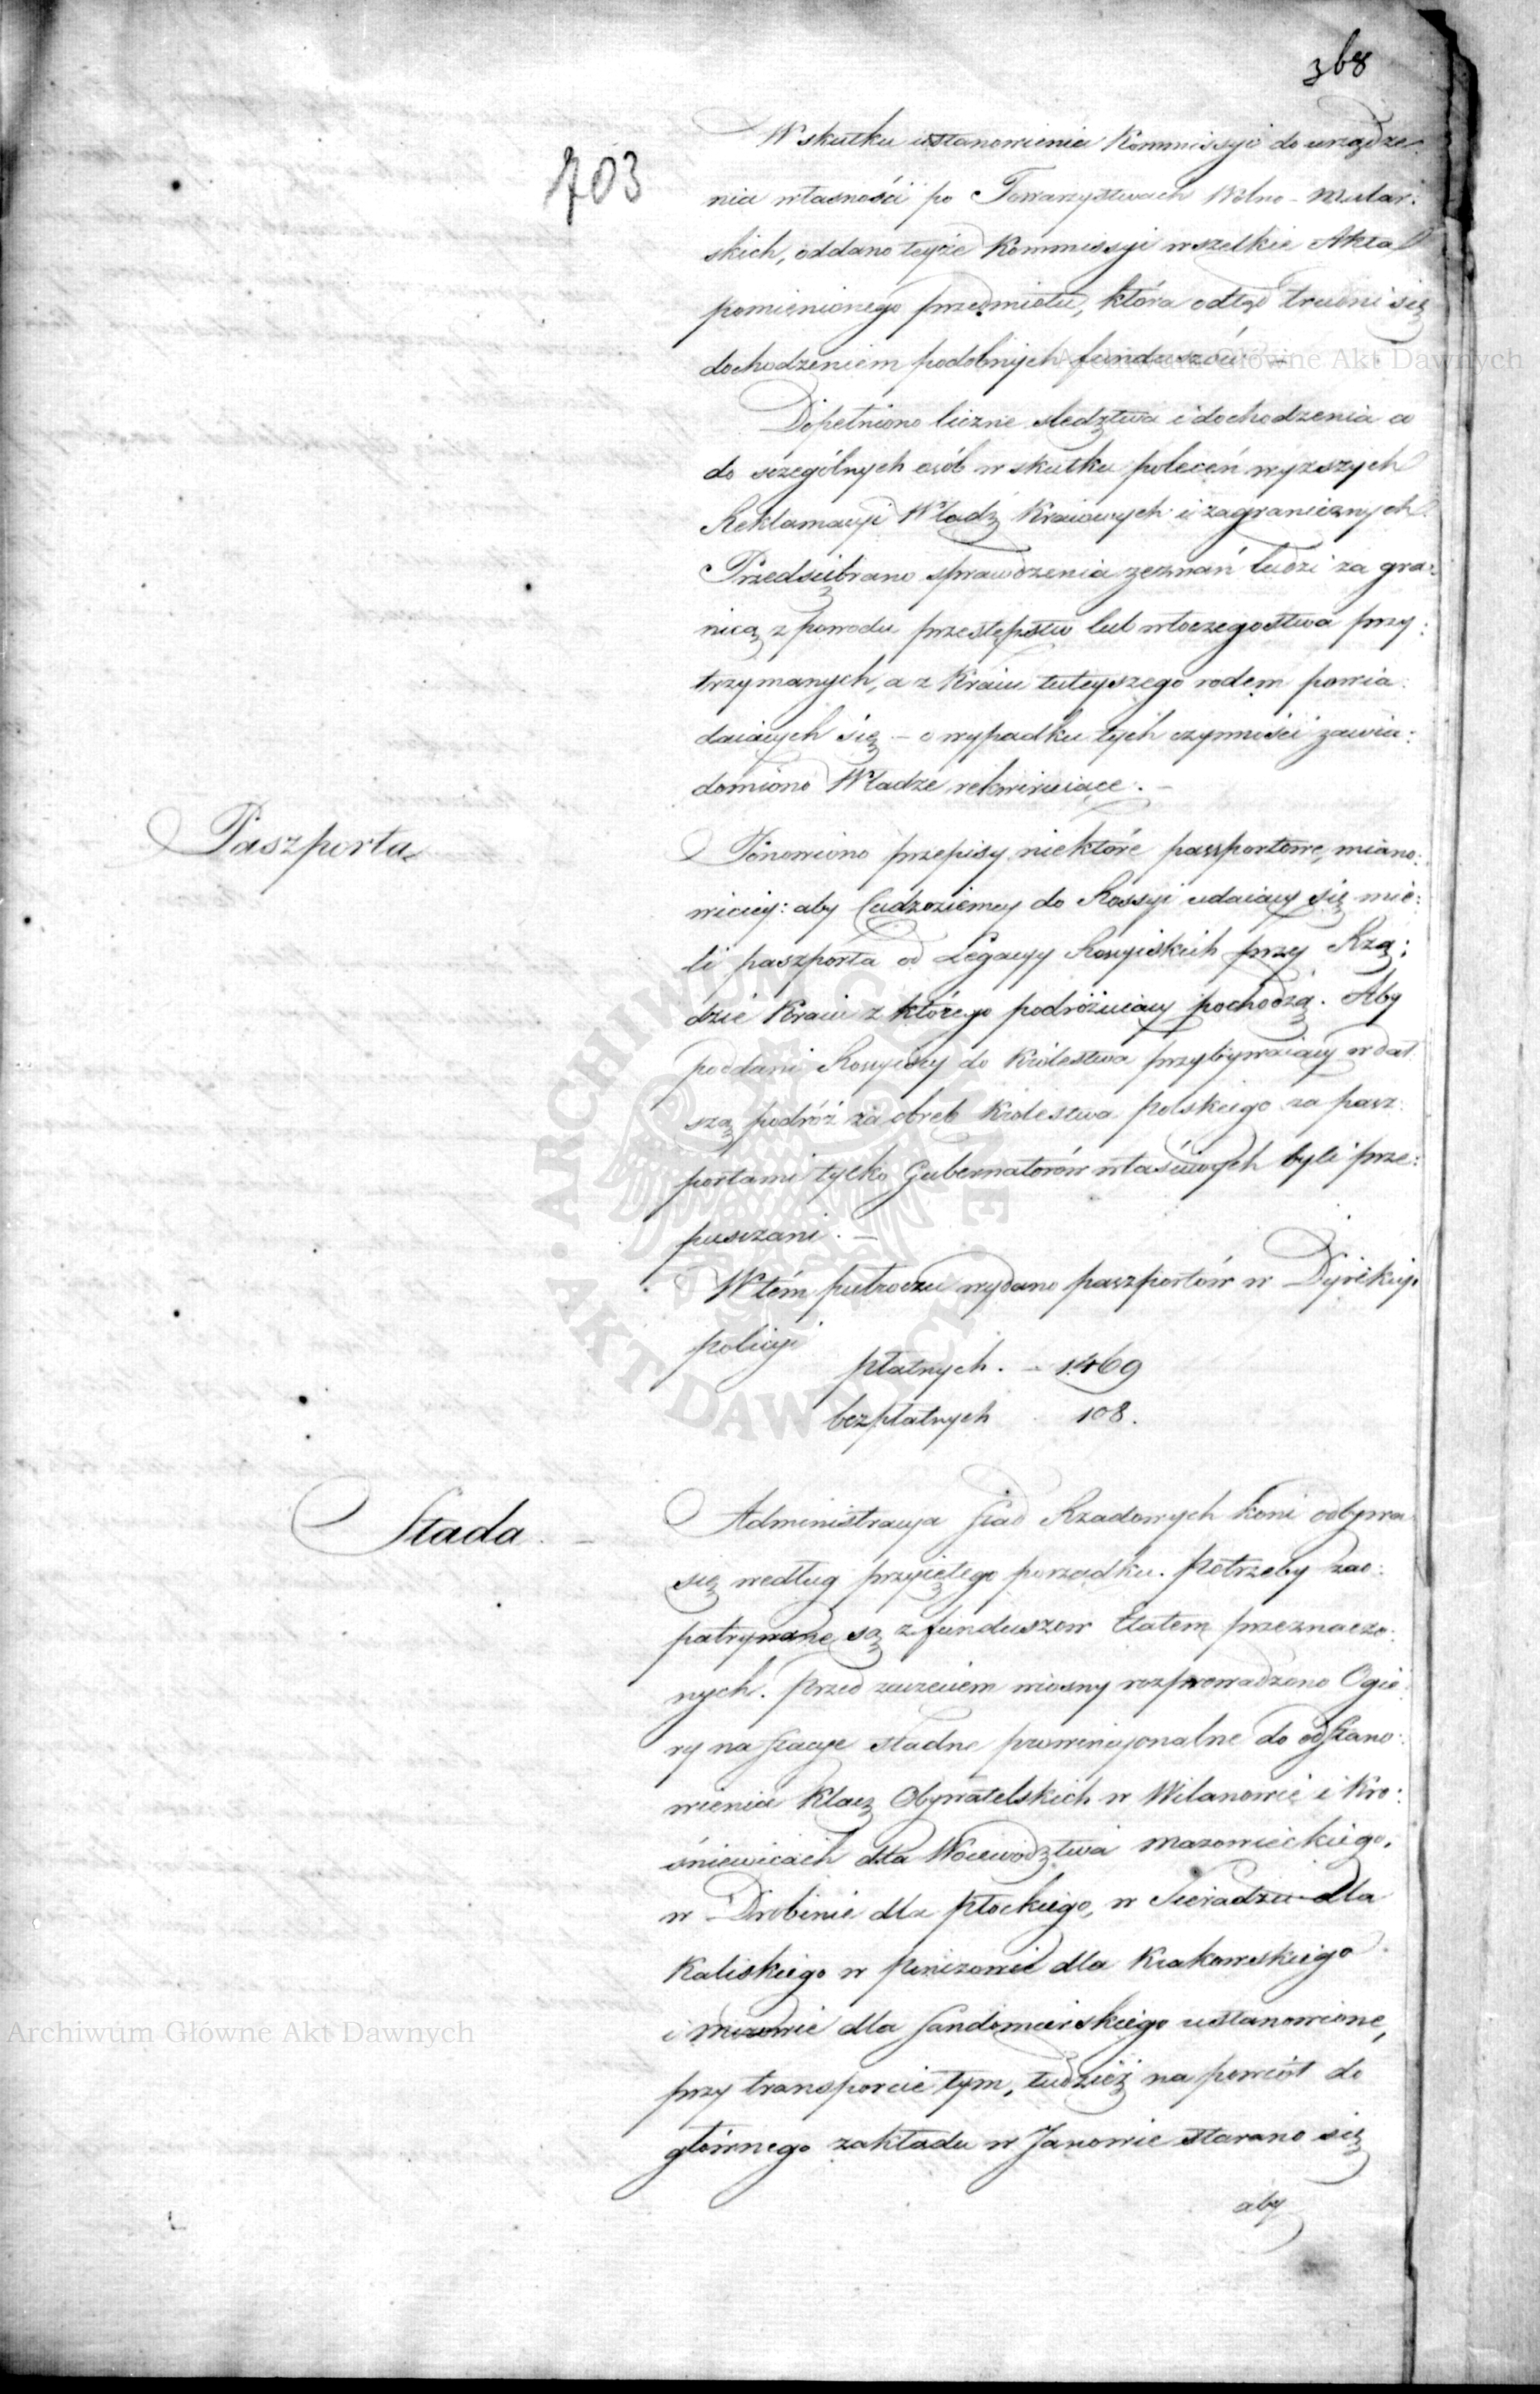 368
703
W skutku ustanowienia Kommissyi do urządze:
nia własności po Towarzystwach Wolno-Mular:
skich, oddano teyże Kommissyi wszelkie Akta
pomienionego przedmiotu, która odtąd trudni się
dochodzeniem podobnych funduszów. –
Dopełniono liczne śledztwa i dochodzenia co
do szczególnych osób w skutku poleceń wyższych
Reklamacyi Władz Kraiowych i zagranicznych.
Przedsiębrano sprawdzenia zeznań ludzi za gra:
nicą z powodu przestępstw lub włóczegostwa przy:
trzymanych, a z Kraiu tuteyszego rodem powia:
daiących się – o wypadku tych czynności zawia:
domiono Władze rekwiruiące. –
Paszporta
Ponowiono przepisy niektóre paszportowe, miano:
wiciey: aby Cudzoziemcy do Rossyi udaiący się mie:
li paszporta od Legacyy Rossyiskich przy Rzą:
dzie Kraiu z którego podróżuiący pochodzą. Aby
poddani Rossyiscy do Królestwa przybywaiący w dal
szą podróż za obręb Królestwa Polskiego za pasz:
portami tylko Gubernatorów właściwych byli prze:
puszczani. –
W tém półroczu wydano paszportów w Dyrekcyi
policyi
płatnych. – 1469
bezpłatnych 108.
Stada. –
Administracya Stad Rządowych koni odbywa
się według przyiętego porządku. Potrzeby zao:
patrywane są z funduszów Etatem przeznaczo:
nych. Przed zaczęciem wiosny rozprowadzono Ogie:
ry na stacye stadne prowincyonalne do odstano:
wienia Klacz Obywatelskich w Wilanowie i Kro:
śniewicach dla Województwa Mazowieckiego,
w Drobinie dla Płockiego, w Sieradziu dla
Kaliskiego w Pinczowie dla Krakowskiego
i dla Sandomierskiego ustanowione,
przy transporcie tym, tudzież na powrót do
głównego zakładu w Janowie starano się
aby
Archiwum Główne Akt Dawnych
Archiwum Główne Akt Dawnych
ARCHIWUM GŁÓWNE · AKT DAWNYCH ·